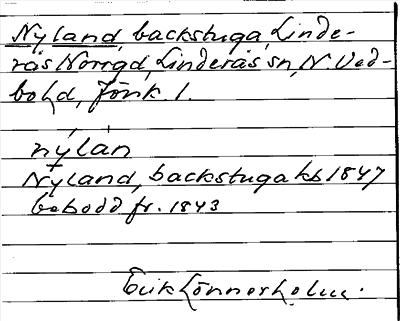 Nyland, backstuga, Linde-
rås Norrgd, Linderås sn, N. Ved-
bo hd, Jönk. l.
nýlán
Nyland, backstuga kb 1847
bebodd fr. 1843
Erik Lönnerholm.